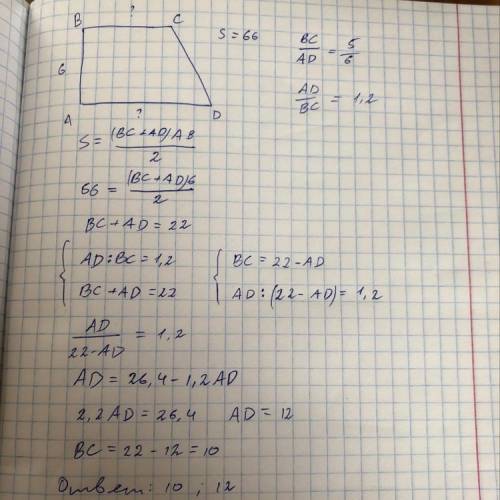 B ? C
6
A ? D
S = 66
BC/AD = 5/6
AD/BC = 1,2
S = (BC+AD)AB/2
66 = (BC+AD)6/2
BC + AD = 22
{ AD : BC = 1,2
BC + AD = 22
{ BC = 22 - AD
AD : (22 - AD) = 1,2
AD/22-AD = 1,2
AD = 26,4 - 1,2AD
2,2AD = 26,4 AD = 12
BC = 22 - 12 = 10
Ответ: 10 ; 12